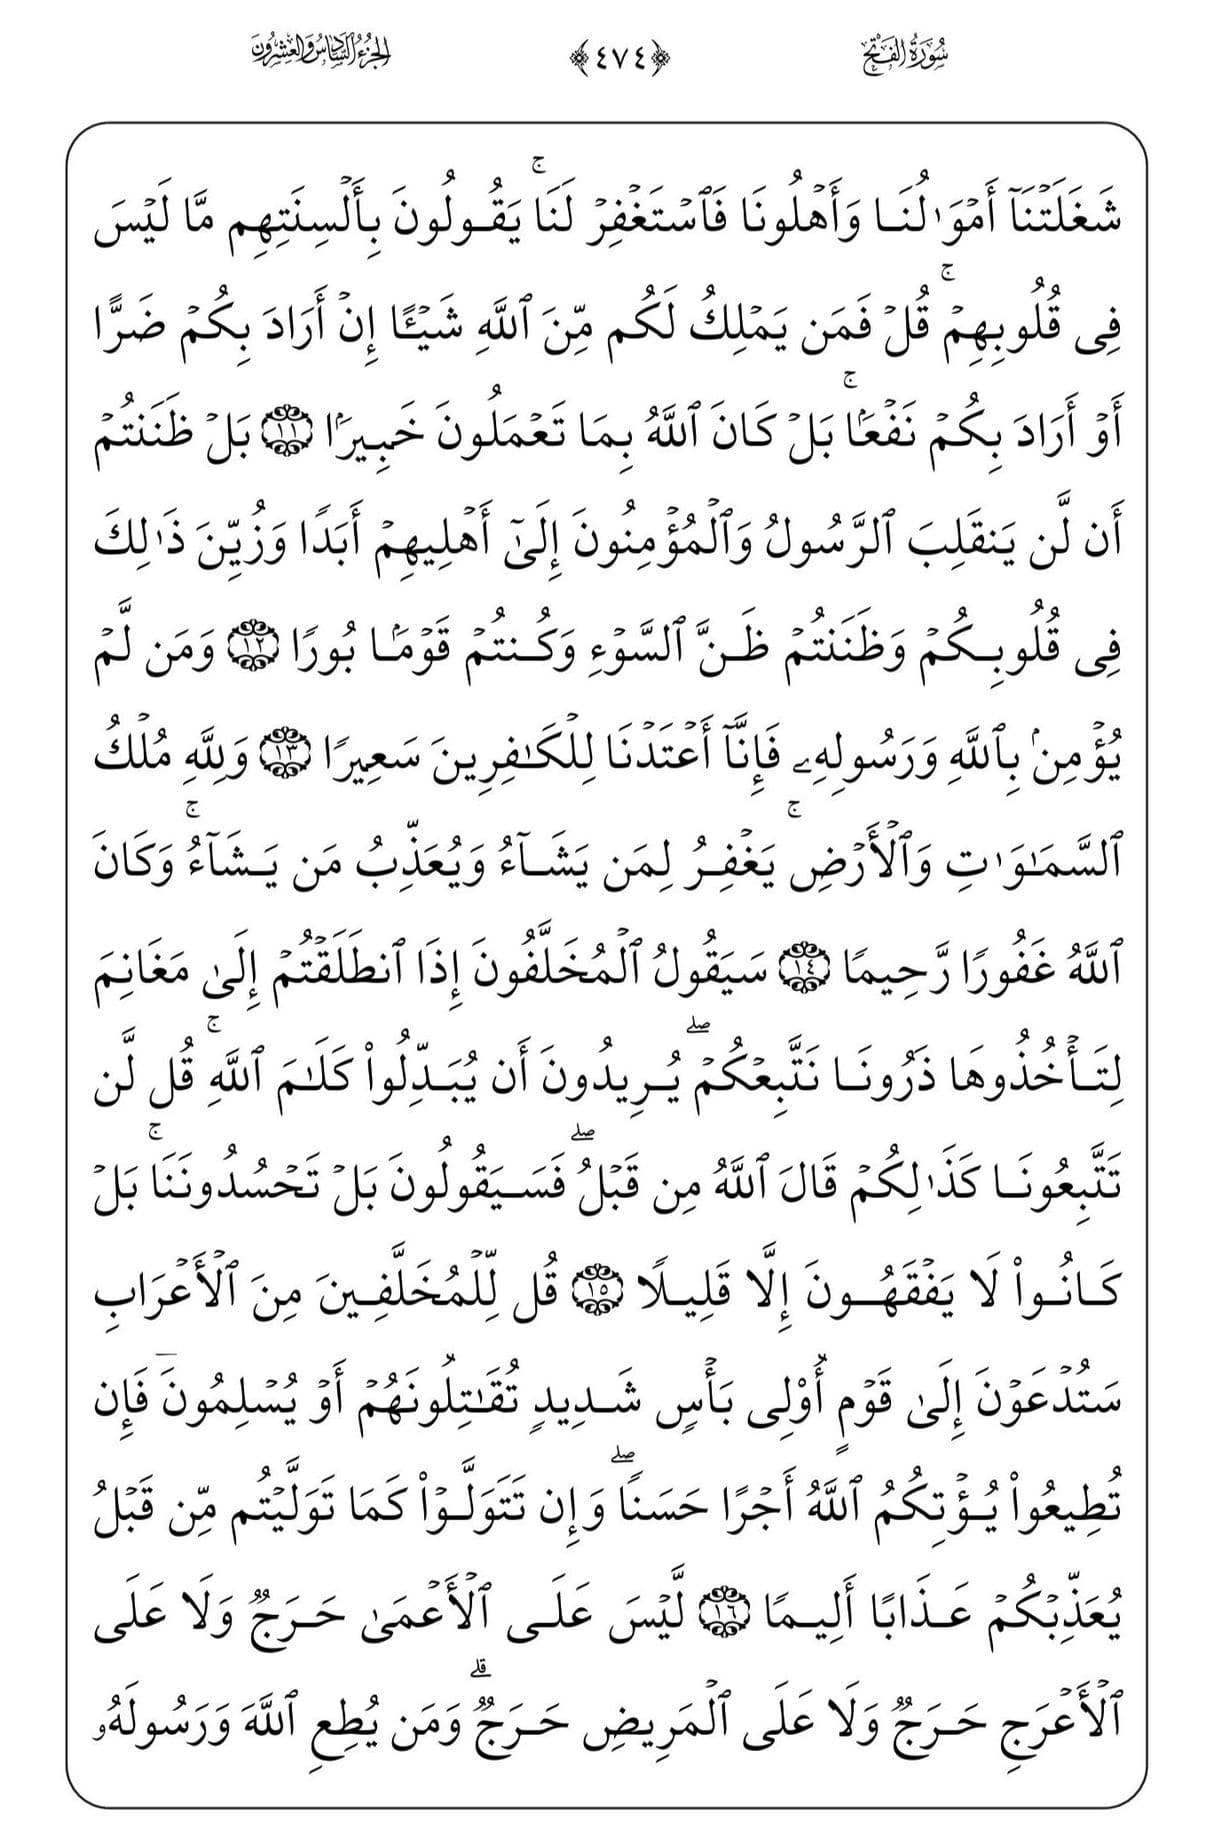 سُورَةُ الفَتْحِ ﴿٤٧٤﴾ الجُزْءُ السَّادِسُ وَالعِشْرُونَ
شَغَلَتْنَآ أَمْوَٰلُنَا وَأَهْلُونَا فَٱسْتَغْفِرْ لَنَا ۚ يَقُولُونَ بِأَلْسِنَتِهِم مَّا لَيْسَ
فِى قُلُوبِهِمْ ۚ قُلْ فَمَن يَمْلِكُ لَكُم مِّنَ ٱللَّهِ شَيْـًٔا إِنْ أَرَادَ بِكُمْ ضَرًّا
أَوْ أَرَادَ بِكُمْ نَفْعًۢا ۚ بَلْ كَانَ ٱللَّهُ بِمَا تَعْمَلُونَ خَبِيرًۢا ١١ بَلْ ظَنَنتُمْ
أَن لَّن يَنقَلِبَ ٱلرَّسُولُ وَٱلْمُؤْمِنُونَ إِلَىٰٓ أَهْلِيهِمْ أَبَدًا وَزُيِّنَ ذَٰلِكَ
فِى قُلُوبِكُمْ وَظَنَنتُمْ ظَنَّ ٱلسَّوْءِ وَكُنتُمْ قَوْمًۢا بُورًا ١٢ وَمَن لَّمْ
يُؤْمِنۢ بِٱللَّهِ وَرَسُولِهِۦ فَإِنَّآ أَعْتَدْنَا لِلْكَٰفِرِينَ سَعِيرًا ١٣ وَلِلَّهِ مُلْكُ
ٱلسَّمَٰوَٰتِ وَٱلْأَرْضِ ۚ يَغْفِرُ لِمَن يَشَآءُ وَيُعَذِّبُ مَن يَشَآءُ ۚ وَكَانَ
ٱللَّهُ غَفُورًا رَّحِيمًا ١٤ سَيَقُولُ ٱلْمُخَلَّفُونَ إِذَا ٱنطَلَقْتُمْ إِلَىٰ مَغَانِمَ
لِتَأْخُذُوهَا ذَرُونَا نَتَّبِعْكُمْ ۖ يُرِيدُونَ أَن يُبَدِّلُوا۟ كَلَٰمَ ٱللَّهِ ۚ قُل لَّن
تَتَّبِعُونَا كَذَٰلِكُمْ قَالَ ٱللَّهُ مِن قَبْلُ ۖ فَسَيَقُولُونَ بَلْ تَحْسُدُونَنَا ۚ بَلْ
كَانُوا۟ لَا يَفْقَهُونَ إِلَّا قَلِيلًا ١٥ قُل لِّلْمُخَلَّفِينَ مِنَ ٱلْأَعْرَابِ
سَتُدْعَوْنَ إِلَىٰ قَوْمٍ أُو۟لِى بَأْسٍ شَدِيدٍ تُقَٰتِلُونَهُمْ أَوْ يُسْلِمُونَ ۖ فَإِن
تُطِيعُوا۟ يُؤْتِكُمُ ٱللَّهُ أَجْرًا حَسَنًا ۖ وَإِن تَتَوَلَّوْا۟ كَمَا تَوَلَّيْتُم مِّن قَبْلُ
يُعَذِّبْكُمْ عَذَابًا أَلِيمًا ١٦ لَّيْسَ عَلَى ٱلْأَعْمَىٰ حَرَجٌ وَلَا عَلَى
ٱلْأَعْرَجِ حَرَجٌ وَلَا عَلَى ٱلْمَرِيضِ حَرَجٌ ۗ وَمَن يُطِعِ ٱللَّهَ وَرَسُولَهُۥ